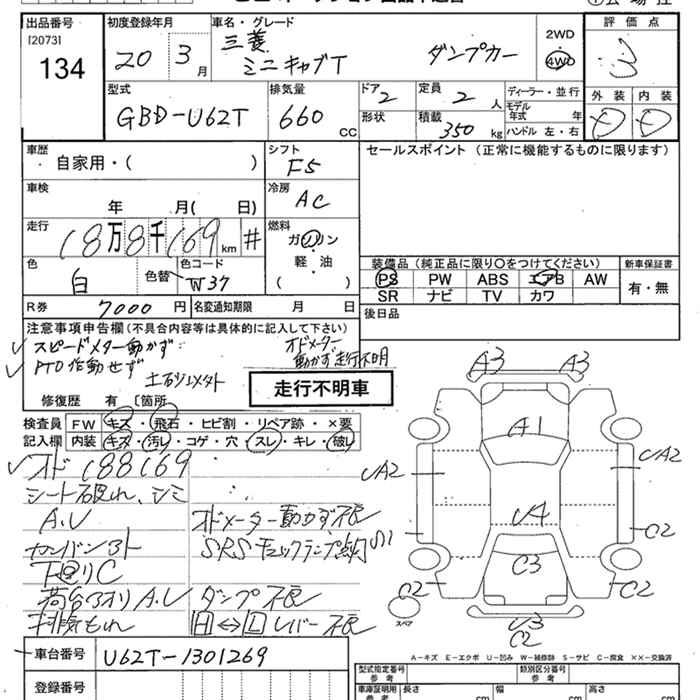 出品番号 初度登録年月 車名・グレード 2WD 評価点
[2073]
134 20年 3月 三菱 ミニキャブT ダンプカー 4WD 3
型式 排気量 ドア 定員 ディーラー・並行 外装 内装
GBD-U62T 660 CC 2 2人 モデル年式 年 D D
形状 積載 350kg ハンドル 左・右
車歴 シフト セールスポイント(正常に機能するものに限ります)
自家用・( ) F5
車検 冷房
年 月( 日) AC
走行 燃料
18万8千169km # ガソリン
軽・油
( )
色 色替 色コード 装備品(純正品に限り○をつけてください) 新車保証書
白 W37 PS PW ABS エアB AW 有・無
SR ナビ TV カワ
R券 7000円 名変通知期限 月 日 後日品
注意事項申告欄(不具合内容等は具体的に記入して下さい)
✓スピードメーター動かず オドメーター
✓PTO作動せず 動かず走行不明
修復歴 有 [箇所 走行不明車
検査員 FW キズ・飛石・ヒビ割・リペア跡・×要
記入欄 内装 キズ・汚レ・コゲ・穴・スレ・キレ・破レ
✓オド188169
シート破れ、シミ
A.U オドメーター動かず不良
カンバン3ト SRSチェックランプ点灯
下回りC
荷台3オリA.U ダンプ不良
排気もれ H⇔Lレバー不良
A3 A3
A1
UA2 UA2
U4
S1 C2
C3
C2 C2
U3
C2
スペア
A-キズ E-エクボ U-凹み W-補修跡 S-サビ C-腐食 ××-交換済
車台番号 U62T-1301269
登録番号
型式指定番号 参考 類別区分番号 参考
車庫証明用 参考 長さ cm 幅 cm 高さ cm